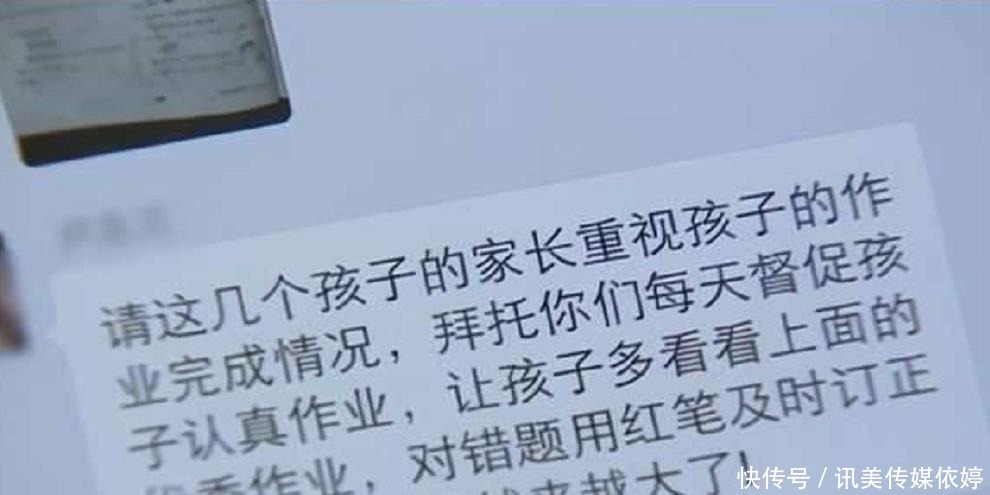 请这几个孩子的家长重视孩子的作
业完成情况，拜托你们每天督促孩
子认真作业，让孩子多看看上面的
优秀作业，对错题用红笔及时订正
越来越大了！
快传号 / 讯美传媒依婷